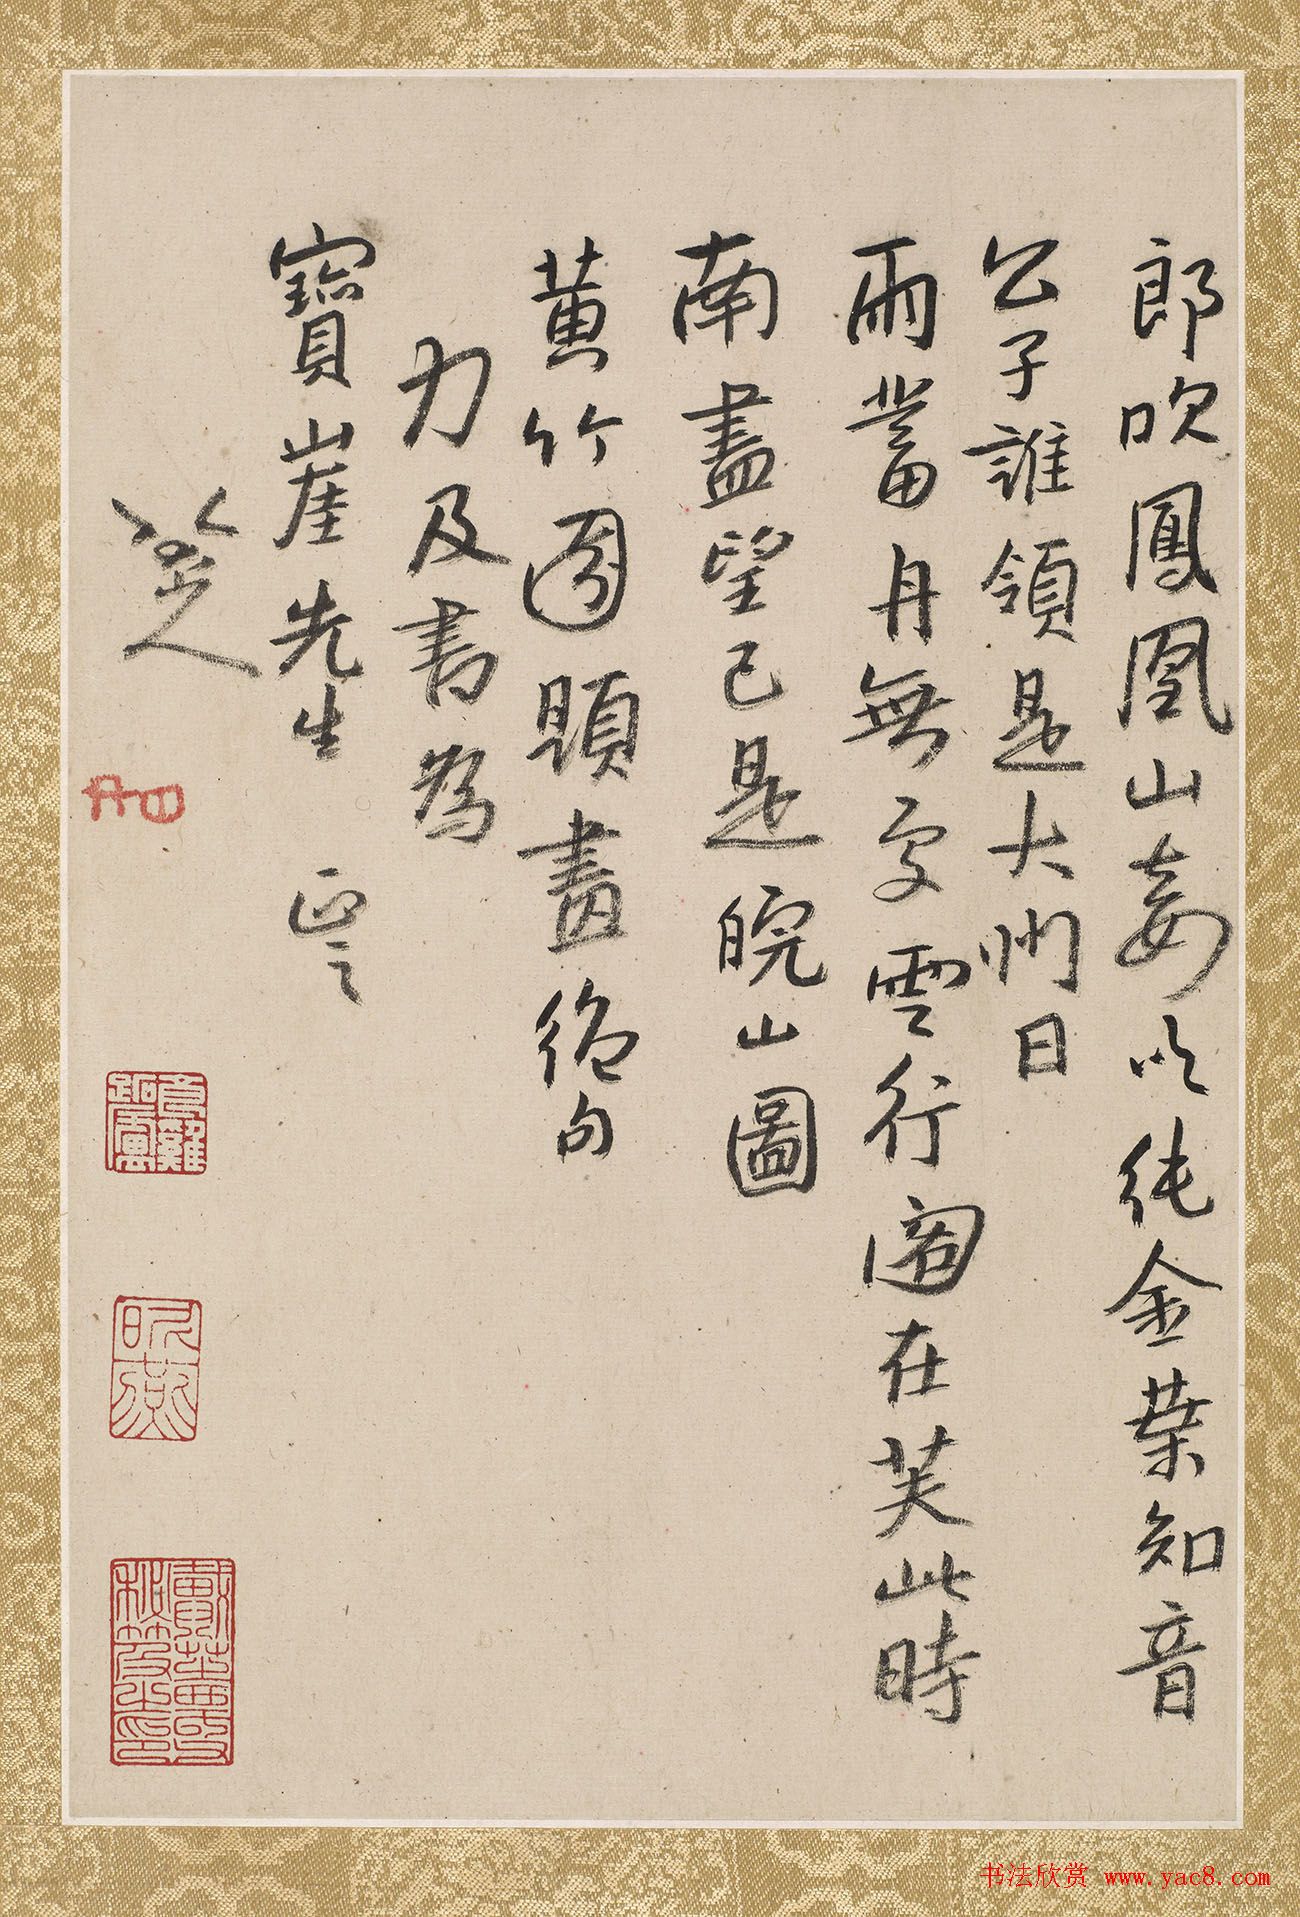 郎吹鳳凰山妾以純金葉知音
公子誰領是大州日
雨蓄舟無字雲行圖在芙此時
南盡望已是皖山圖
黃竹園題畫絕句
力及書為
寶崖先生 正之
八大山人
书法欣赏 www.yac8.com